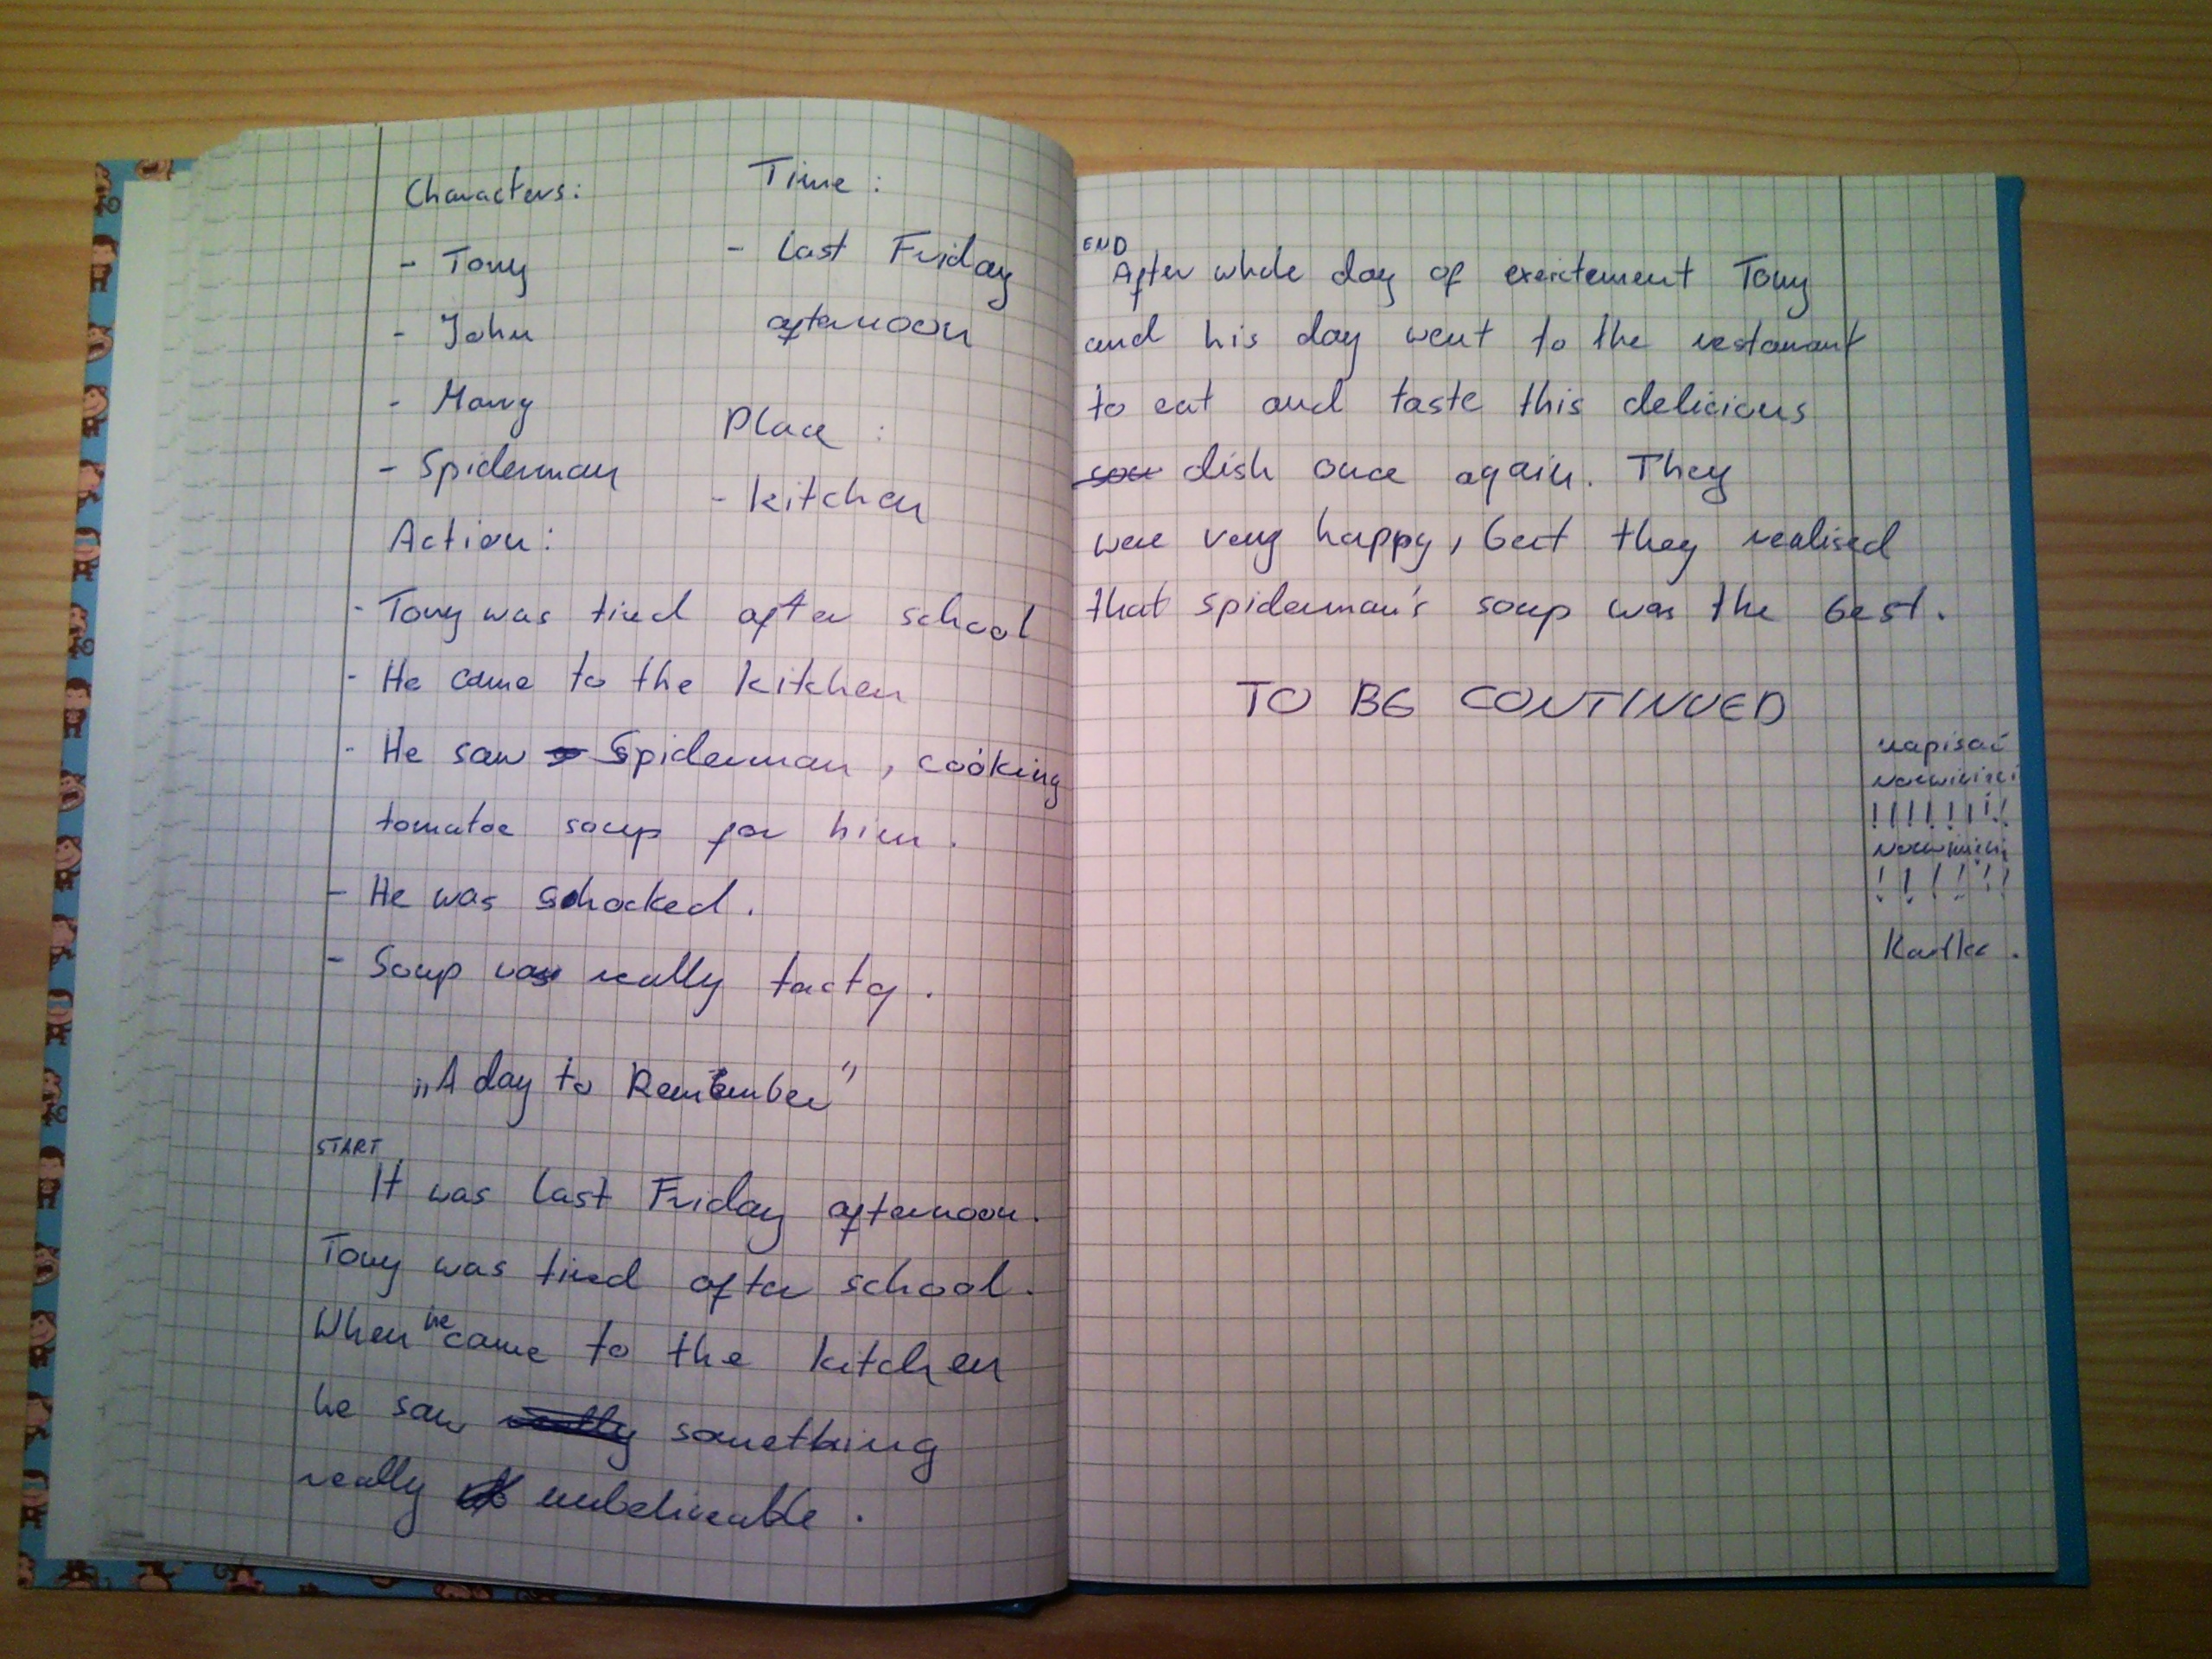 Characters:
- Tony
- John
- Mary
- Spiderman
Time:
- Last Friday
afternoon
Place:
- kitchen
Action:
- Tony was tired after school
- He came to the kitchen
- He saw Spiderman, cooking
tomatoe soup for him.
- He was schocked.
- Soup was really tacty.
„A day to Remember”
START
It was last Friday afternoon.
Tony was tired after school.
When he came to the kitchen
he saw something
really unbeliveable.
END
After whole day of Tony
and his day went to the
to eat and taste this delicious
dish once again. They
were very happy, but they realised
that spiderman's soup was the best.
TO BE CONTINUED
napisać
!!!!!!!!
!!!!!!